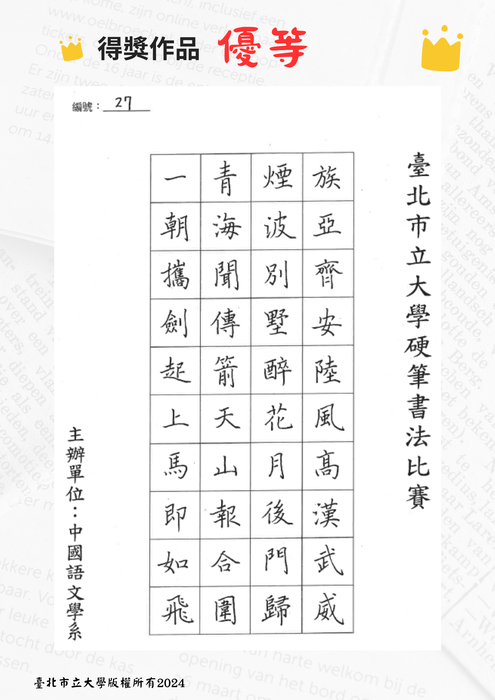 得獎作品 優等
編號：27
臺北市立大學硬筆書法比賽
族亞齊安陸風高漢武威
煙波別墅醉花月後門歸
青海聞傳箭天山報合圍
一朝攜劍起上馬即如飛
主辦單位：中國語文學系
臺北市立大學版權所有2024